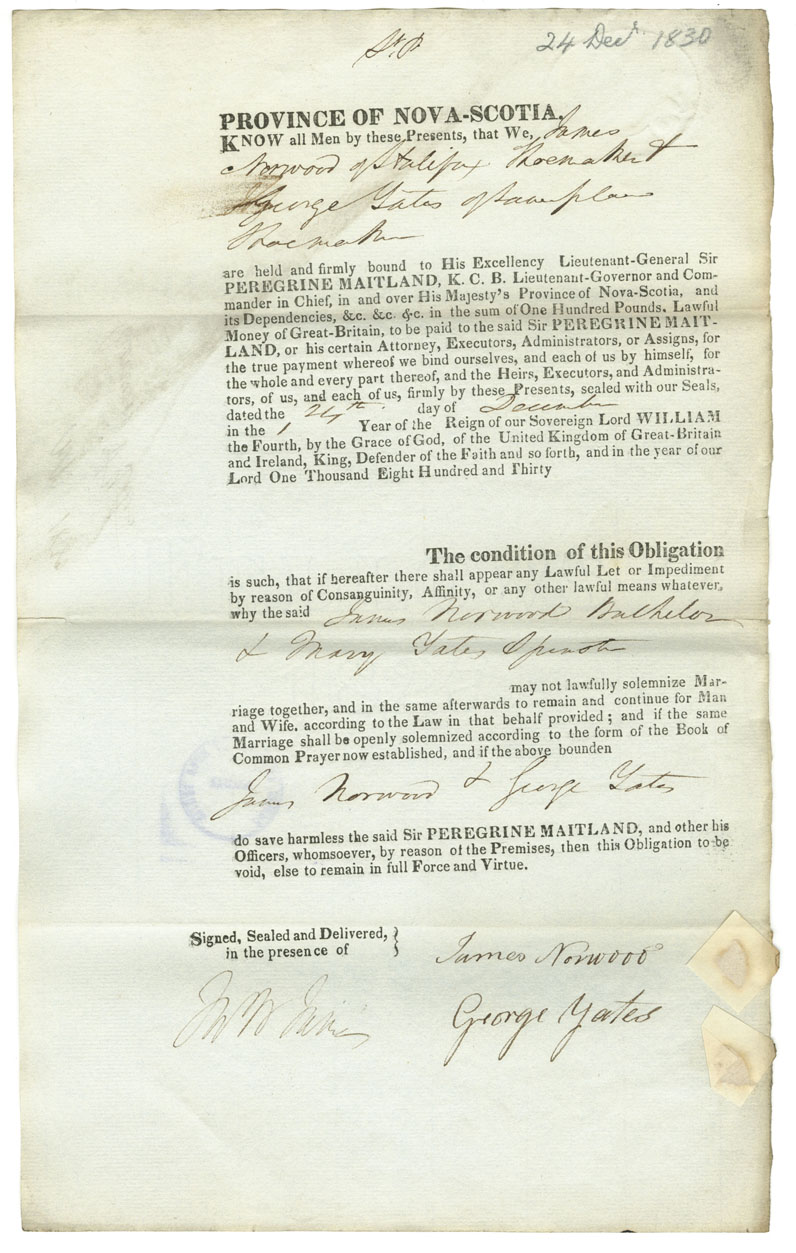 St. P
24 Decr. 1830
PROVINCE OF NOVA-SCOTIA.
KNOW all Men by these Presents, that We, James
Norwood of Halifax Shoemaker &
George Yates of same place
Shoemaker
are held and firmly bound to His Excellency Lieutenant-General Sir
PEREGRINE MAITLAND, K. C. B. Lieutenant-Governor and Com-
mander in Chief, in and over His Majesty's Province of Nova-Scotia, and
its Dependencies, &c. &c. &c. in the sum of One Hundred Pounds, Lawful
Money of Great-Britain, to be paid to the said Sir PEREGRINE MAIT-
LAND, or his certain Attorney, Executors, Administrators, or Assigns, for
the true payment whereof we bind ourselves, and each of us by himself, for
the whole and every part thereof, and the Heirs, Executors, and Administra-
tors, of us, and each of us, firmly by these Presents, sealed with our Seals,
dated the 24th day of December
in the 1 Year of the Reign of our Sovereign Lord WILLIAM
the Fourth, by the Grace of God, of the United Kingdom of Great-Britain
and Ireland, King, Defender of the Faith and so forth, and in the year of our
Lord One Thousand Eight Hundred and Thirty
The condition of this Obligation
is such, that if hereafter there shall appear any Lawful Let or Impediment
by reason of Consanguinity, Affinity, or any other lawful means whatever,
why the said James Norwood Bachelor
& Mary Yates Spinster
may not lawfully solemnize Mar-
riage together, and in the same afterwards to remain and continue for Man
and Wife. according to the Law in that behalf provided; and if the same
Marriage shall be openly solemnized according to the form of the Book of
Common Prayer now established, and if the above bounden
James Norwood & George Yates
do save harmless the said Sir PEREGRINE MAITLAND, and other his
Officers, whomsoever, by reason of the Premises, then this Obligation to be
void, else to remain in full Force and Virtue.
Signed, Sealed and Delivered,
in the presence of
James Norwood
George Yates